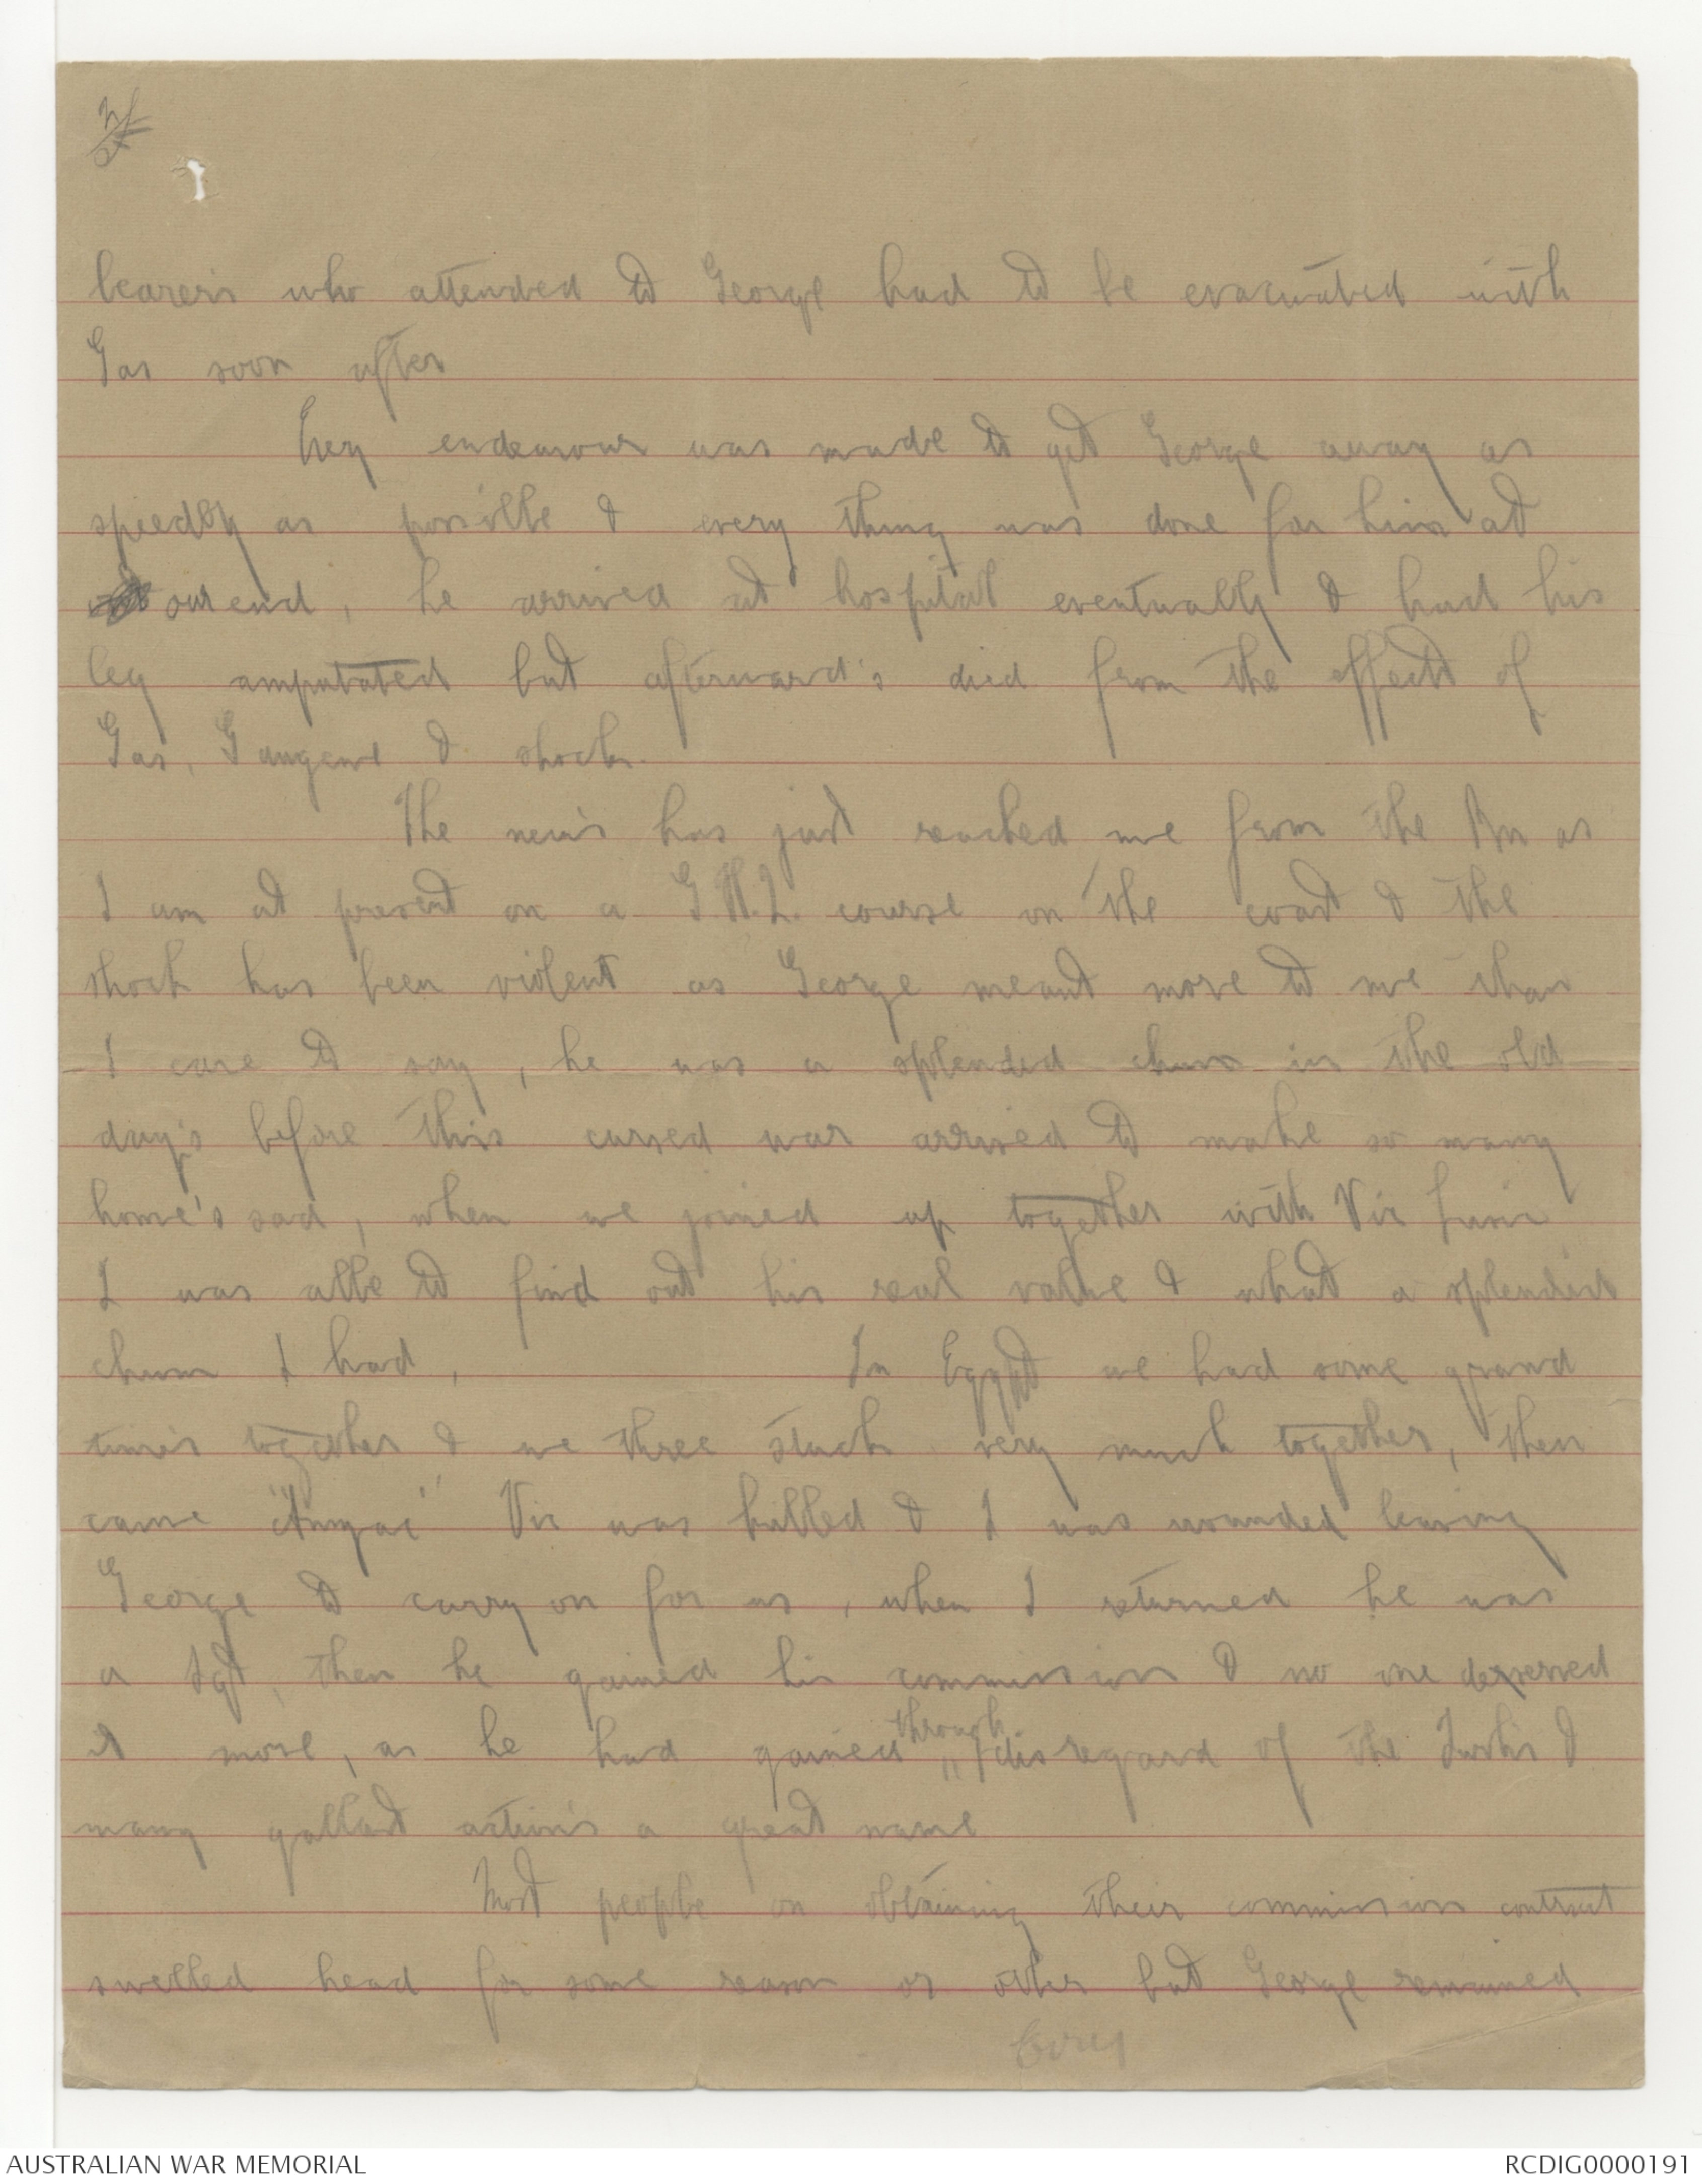 bearer's who attended to George had to be evacuated with
Gas soon after
Every endeavour was made to get George away as
speedly as possible & every thing was done for him at
our end, he arrived at hospital eventually & had his
leg amputated but afterward's died from the effects of
Gas, Gangerne & shock.
The new's has just reached me from the Bn as
I am at present on a course on the coast & the
shock has been violent as George meant more to me than
I care to say, he was a splended chum in the old
day's before this cursed war arrived to make so many
home's sad, when we joined up together with Vic
I was able to find out his real value & what a splendid
chum I had, In Egypt we had some grand
time's together & we three stuck very much together, then
came "Anzac" Vic was killed & I was wounded leaving
George to carry on for us, when I returned he was
a Sgt, then he gained his commission & no one deserved
it more, as he had gained through disregard of the Turks &
many gallant action's a great name
Most people on obtaining their commission contract
swelled head for some reason or other but George remained